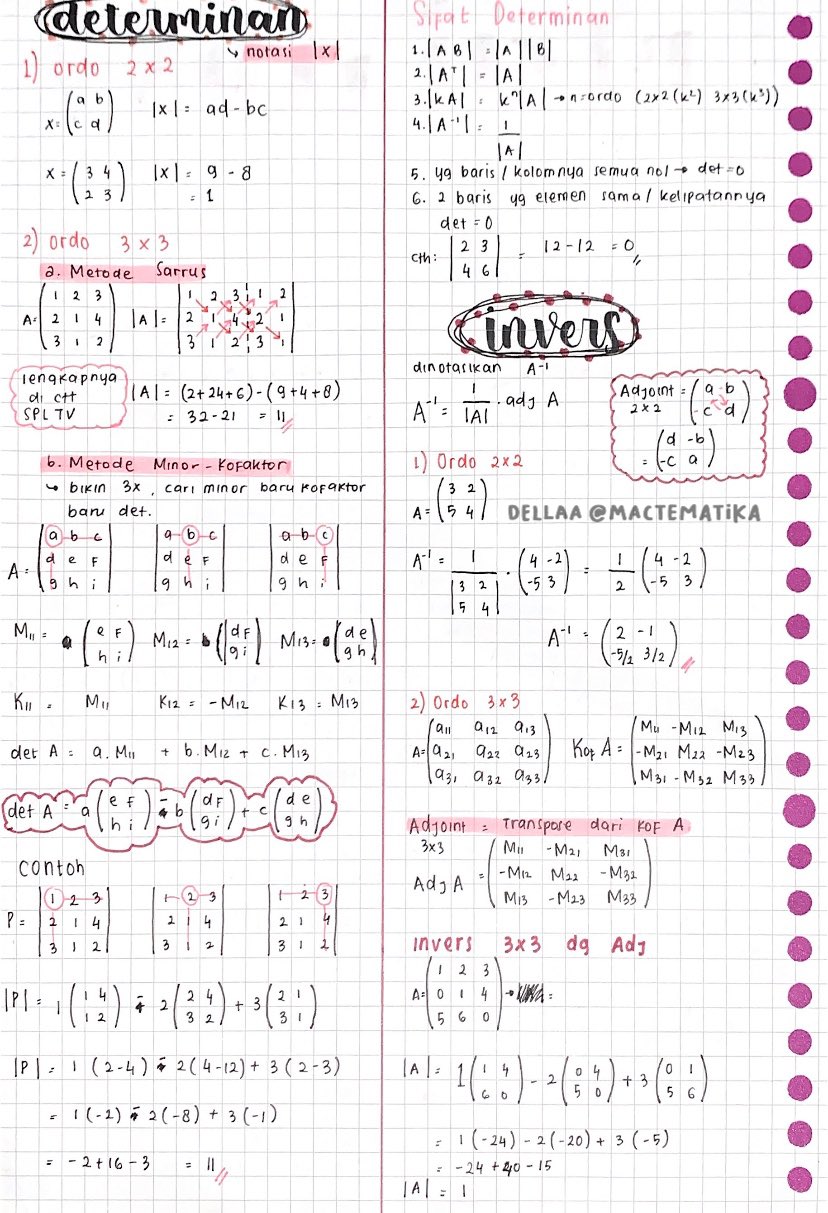 determinan
↳ notasi |x|
1) ordo 2 x 2
x = (a b
c d) |x| = ad - bc
x = (3 4
2 3) |x| = 9 - 8
= 1
2) ordo 3 x 3
a. Metode Sarrus
A = (1 2 3
2 1 4
3 1 2) |A| = |1 2 3 | 1 2
2 1 4 | 2 1
3 1 2 | 3 1|
lengkapnya
di ctt
SPLTV
|A| = (2+24+6) - (9+4+8)
= 32 - 21 = 11
b. Metode Minor - Kofaktor
↳ bikin 3x, cari minor baru kofaktor
baru det.
A = |a b c
d e F
g h i| |a b c
d e F
g h i| |a b c
d e F
g h i|
M11 = (e F
h i) M12 = (d F
g i) M13 = (d e
g h)
K11 = M11 K12 = -M12 K13 = M13
det A = a. M11 + b. M12 + c. M13
det A = a (e F
h i) - b (d F
g i) + c (d e
g h)
contoh
P = |1 2 3
2 1 4
3 1 2| |1 2 3
2 1 4
3 1 2| |1 2 3
2 1 4
3 1 2|
|P| = 1 (1 4
1 2) - 2 (2 4
3 2) + 3 (2 1
3 1)
|P| = 1 (2-4) - 2 (4-12) + 3 (2-3)
= 1 (-2) - 2 (-8) + 3 (-1)
= -2 + 16 - 3 = 11
Sifat Determinan
1. |A B| = |A| |B|
2. |Aᵀ| = |A|
3. |kA| = kⁿ|A| → n=ordo (2x2 (k²) 3x3 (k³))
4. |A⁻¹| = 1
|A|
5. yg baris / kolomnya semua nol → det = 0
6. 2 baris yg elemen sama / kelipatannya
det = 0
cth: |2 3
4 6| = 12 - 12 = 0
invers
dinotasikan A⁻¹
A⁻¹ = 1/|A| . adj A
Adjoint = (a b
2x2 -c d)
= (d -b
-c a)
1) Ordo 2x2
A = (3 2
5 4)
DELLAA @MACTEMATiKA
A⁻¹ = 1
|3 2
5 4| . (4 -2
-5 3) = 1/2 (4 -2
-5 3)
A⁻¹ = (2 -1
-5/2 3/2)
2) Ordo 3x3
A = (a11 a12 a13
a21 a22 a23
a31 a32 a33) Kof A = (M11 -M12 M13
-M21 M22 -M23
M31 -M32 M33)
Adjoint = Transpose dari KOF A
3x3
Adj A = (M11 -M21 M31
-M12 M22 -M32
M13 -M23 M33)
invers 3x3 dg Adj
A = (1 2 3
0 1 4
5 6 0) → =
|A| = 1 (1 4
6 0) - 2 (0 4
5 0) + 3 (0 1
5 6)
= 1 (-24) - 2 (-20) + 3 (-5)
= -24 + 40 - 15
|A| = 1